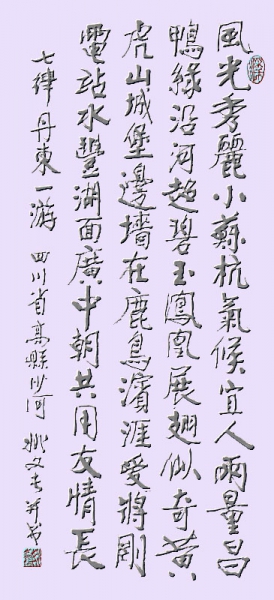 風光秀麗小蘇杭氣候宜人雨量昌
鴨緑沿河超碧玉鳳凰展翅似奇黄
虎山城堡邊墻在鹿鳥濱涯愛將剛
電站水豐湖面廣中朝共用友情長
七律丹東一游 四川省高縣沙河 姚文長并書